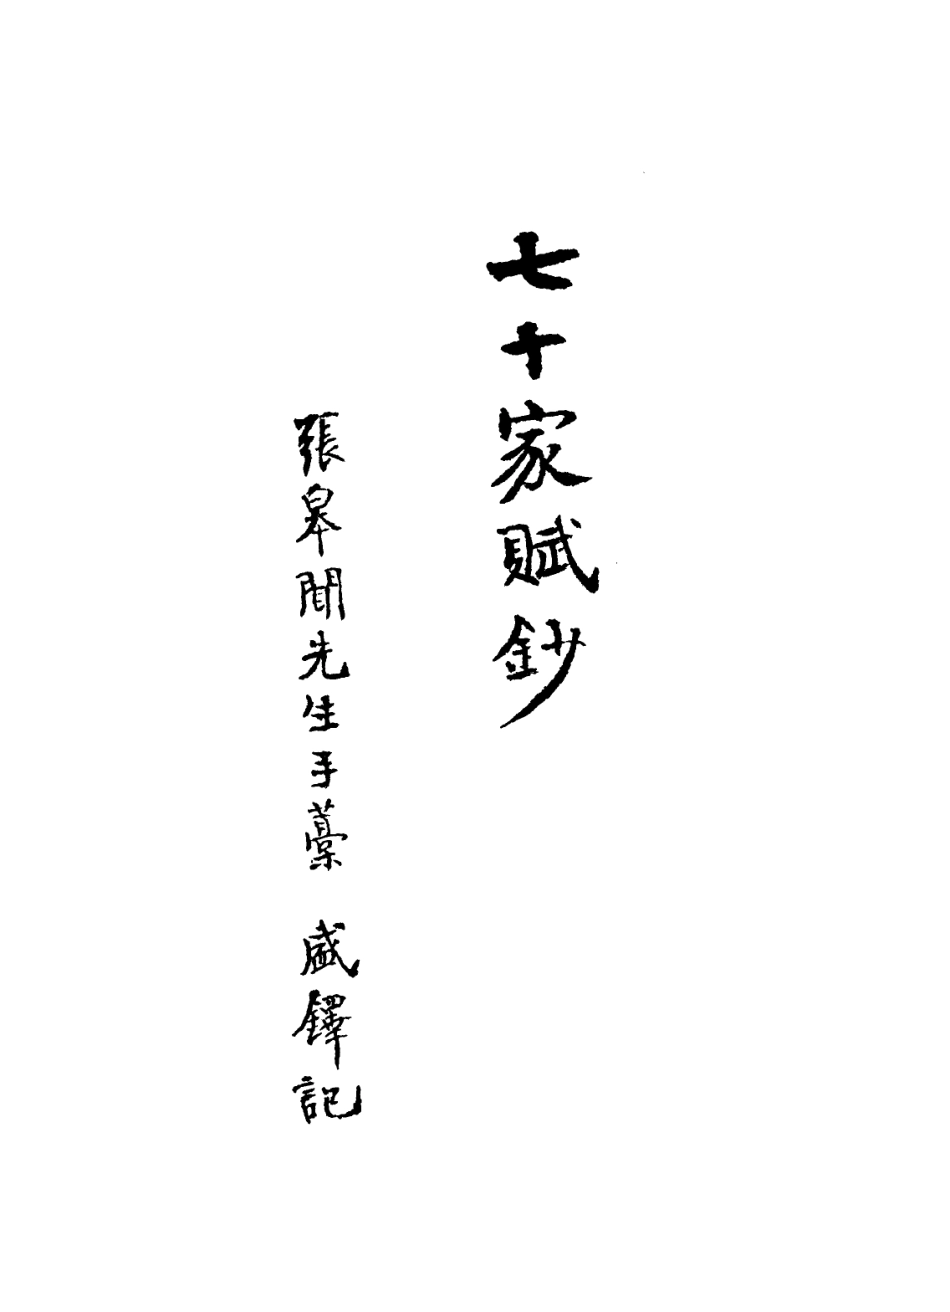 七十家賦鈔
張皋聞先生手藁　盛鐸記